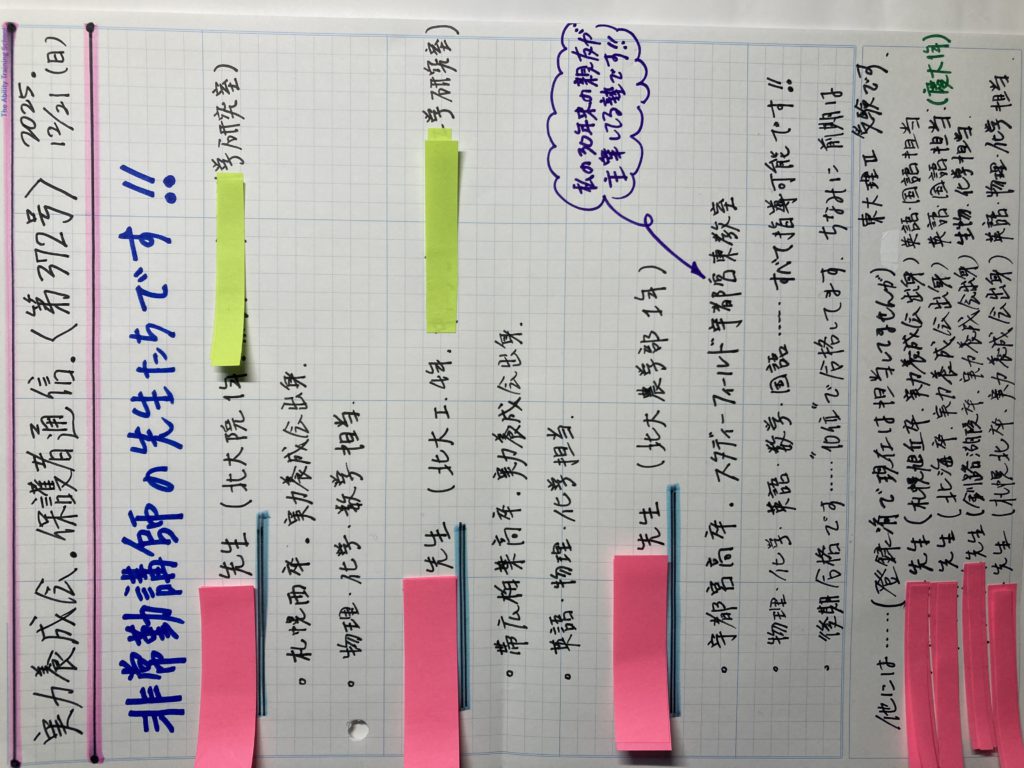 The Ability Training
実力養成会.保護者通信.(第372号) 2025. 12/21(日)
非常勤講師の先生たちです!!
先生 (北大院1年 学研究室)
・札幌西卒.実力養成会出身.
・物理・化学・数学担当.
先生 (北大工.4年. 学研究室)
・帯広柏葉高卒.実力養成会出身.
・英語・物理・化学担当.
先生 (北大農学部1年)
私の30年来の親友が主宰してる塾です!!
・宇都宮高卒.スタディーフィールド宇都宮東教室
・物理・化学・英語・数学・国語……すべて指導可能です!!
・後期合格です……"10位"で合格してます.ちなみに前期は東大理II受験です.
他には……(登録済で現在は担当してませんが)
先生(札幌旭丘卒.実力養成会出身)英語・国語担当
先生(北海卒.実力養成会出身)英語・国語担当.(慶大1年)
先生(釧路湖陵卒.実力養成会出身)生物・化学担当.
先生(札幌北卒.実力養成会出身)英語・物理・化学担当